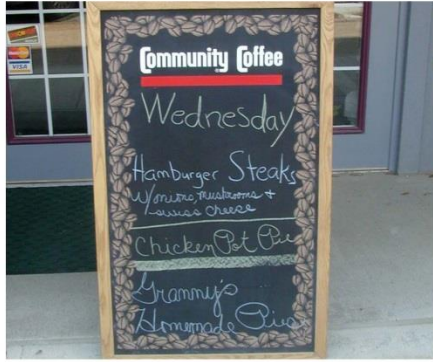 Community Coffee
Wednesday
Hamburger Steaks
W/onions, mushrooms +
swiss cheese
Chicken Pot Pie
Granny's
Homemade Pies
VISA